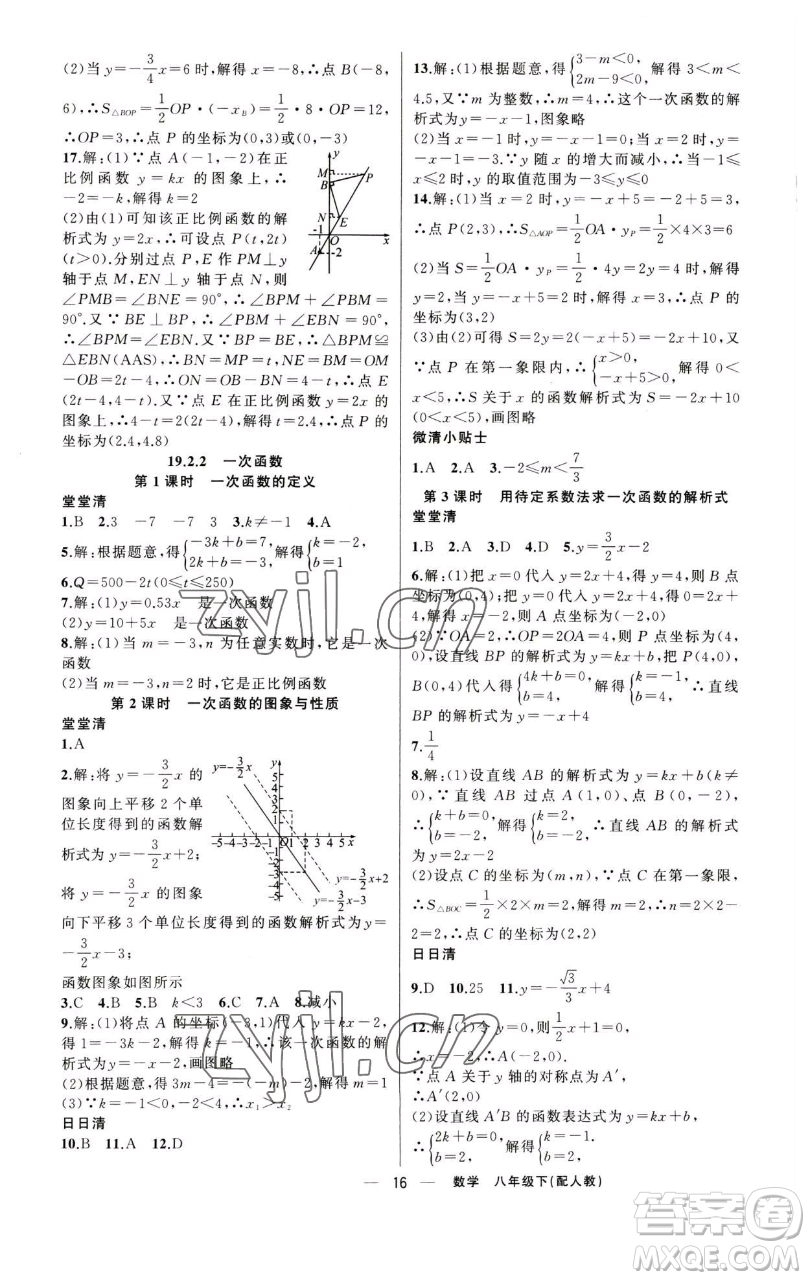 (2)当 y=-3/4x=6 时,解得 x=-8,∴点 B(-8,
6),∴S△BOP=1/2OP·(-xB)=1/2·8·OP=12,
∴OP=3,∴点 P 的坐标为(0,3)或(0,-3)
17.解:(1)∵点 A(-1,-2)在正
比例函数 y=kx 的图象上,∴
-2=-k,解得 k=2
(2)由(1)可知该正比例函数的解
析式为 y=2x,∴可设点 P(t,2t)
(t>0).分别过点 P,E 作 PM⊥y
轴于点 M,EN⊥y 轴于点 N,则
∠PMB=∠BNE=90°,∴∠BPM+∠PBM=
90°.又∵BE⊥BP,∴∠PBM+∠EBN=90°,
∴∠BPM=∠EBN.又∵BP=BE,∴△BPM≌
△EBN(AAS),∴BN=MP=t,NE=BM=OM
-OB=2t-4,∴ON=OB-BN=4-t,∴点 E
(2t-4,4-t).又∵点 E 在正比例函数 y=2x 的
图象上,∴4-t=2(2t-4),解得 t=2.4,∴点 P 的
坐标为(2.4,4.8)
y
M
P
B
N
E
-1
O
x
A
-2
19.2.2 一次函数
第 1 课时 一次函数的定义
堂堂清
1.B 2.3 -7 -7 3 3.k≠-1 4.A
5.解:根据题意,得{-3k+b=7, 2k+b=-3,解得{k=-2, b=1
6.Q=500-2t(0≤t≤250)
7.解:(1)y=0.53x 是一次函数
(2)y=10+5x 是一次函数
8.解:(1)当 m=-3,n 为任意实数时,它是一次
函数
(2)当 m=-3,n=2 时,它是正比例函数
第 2 课时 一次函数的图象与性质
堂堂清
1.A
2.解:将 y=-3/2x 的
图象向上平移 2 个单
位长度得到的函数解
析式为 y=-3/2x+2;
将 y=-3/2x 的图象
向下平移 3 个单位长度得到的函数解析式为 y=
-3/2x-3;
函数图象如图所示
y=-3/2x
y
-5-4-3-2-1 O 1 2 3 4 5 x
y=-3/2x+2
y=-3/2x-3
3.C 4.B 5.B k<3 6.C 7.A 8.减小
9.解:(1)将点 A 的坐标(-3,1)代入 y=kx-2,
得-3k-2=1,解得 k=-1,∴该一次函数的解
析式为 y=-x-2,画图略
(2)根据题意,得 3m-4=-(-m)-2,解得 m=1
(3)∵k=-1<0,-2<4,∴x₁>x₂
日日清
10.B 11.A 12.D
13.解:(1)根据题意,得{3-m<0, 2m-9<0,解得 3<m<
4.5,又∵m 为整数,∴m=4,∴这个一次函数的解
析式为 y=-x-1,图象略
(2)当 x=-1 时,y=-x-1=0;当 x=2 时,y=
-x-1=-3.∵y 随 x 的增大而减小,∴当-1≤
x≤2 时,y 的取值范围为-3≤y≤0
14.解:(1)当 x=2 时,y=-x+5=-2+5=3,
∴点 P(2,3),∴S△AOP=1/2OA·yP=1/2×4×3=6
(2)当 S=1/2OA·yP=1/2·4y=2y=4 时,解得
y=2,当 y=-x+5=2 时,解得 x=3,∴点 P 的
坐标为(3,2)
(3)由(2)可知 S=2y=2(-x+5)=-2x+10,又
∵点 P 在第一象限内,∴{x>0, -x+5>0,解得 0<
x<5,∴S 关于 x 的函数解析式为 S=-2x+10
(0<x<5),画图略
微清小贴士
1.A 2.A 3.-2≤m<7/3
第 3 课时 用待定系数法求一次函数的解析式
堂堂清
1.B 2.A 3.D 4.D 5.y=3/2x-2
6.解:(1)把 x=0 代入 y=2x+4,得 y=4,则 B 点
坐标为(0,4);把 y=0 代入 y=2x+4,得 2x+4=
0,解得 x=-2,则 A 点坐标为(-2,0)
(2)∵OA=2,∴OP=2OA=4,则点 P 坐标为(4,
0),设直线 BP 的解析式为 y=kx+b,把 P(4,0),
B(0,4)代入得{4k+b=0, b=4,解得{k=-1, b=4,∴直线
BP 的解析式为 y=-x+4
7.1/4
8.解:(1)设直线 AB 的解析式为 y=kx+b(k≠
0),∵直线 AB 过点 A(1,0)、点 B(0,-2),
∴{k+b=0, b=-2,解得{k=2, b=-2,∴直线 AB 的解析式
为 y=2x-2
(2)设点 C 的坐标为(m,n),∵点 C 在第一象限,
∴S△BOC=1/2×2×m=2,解得 m=2,∴n=2×2-
2=2,∴点 C 的坐标为(2,2)
日日清
9.D 10.25 11.y=-√3/3x+4
12.解:(1)令 y=0,则1/2x+1=0,
∴x=-2,∴A(-2,0).
∵点 A 关于 y 轴的对称点为 A′,
∴A′(2,0)
(2)设直线 A′B 的函数表达式为 y=kx+b,
∴{2k+b=0, b=2,解得{k=-1, b=2.
— 16 — 数学 八年级下(配人教)
zyjl.cn
zyjl.cn
答案圈
MXQE.COM